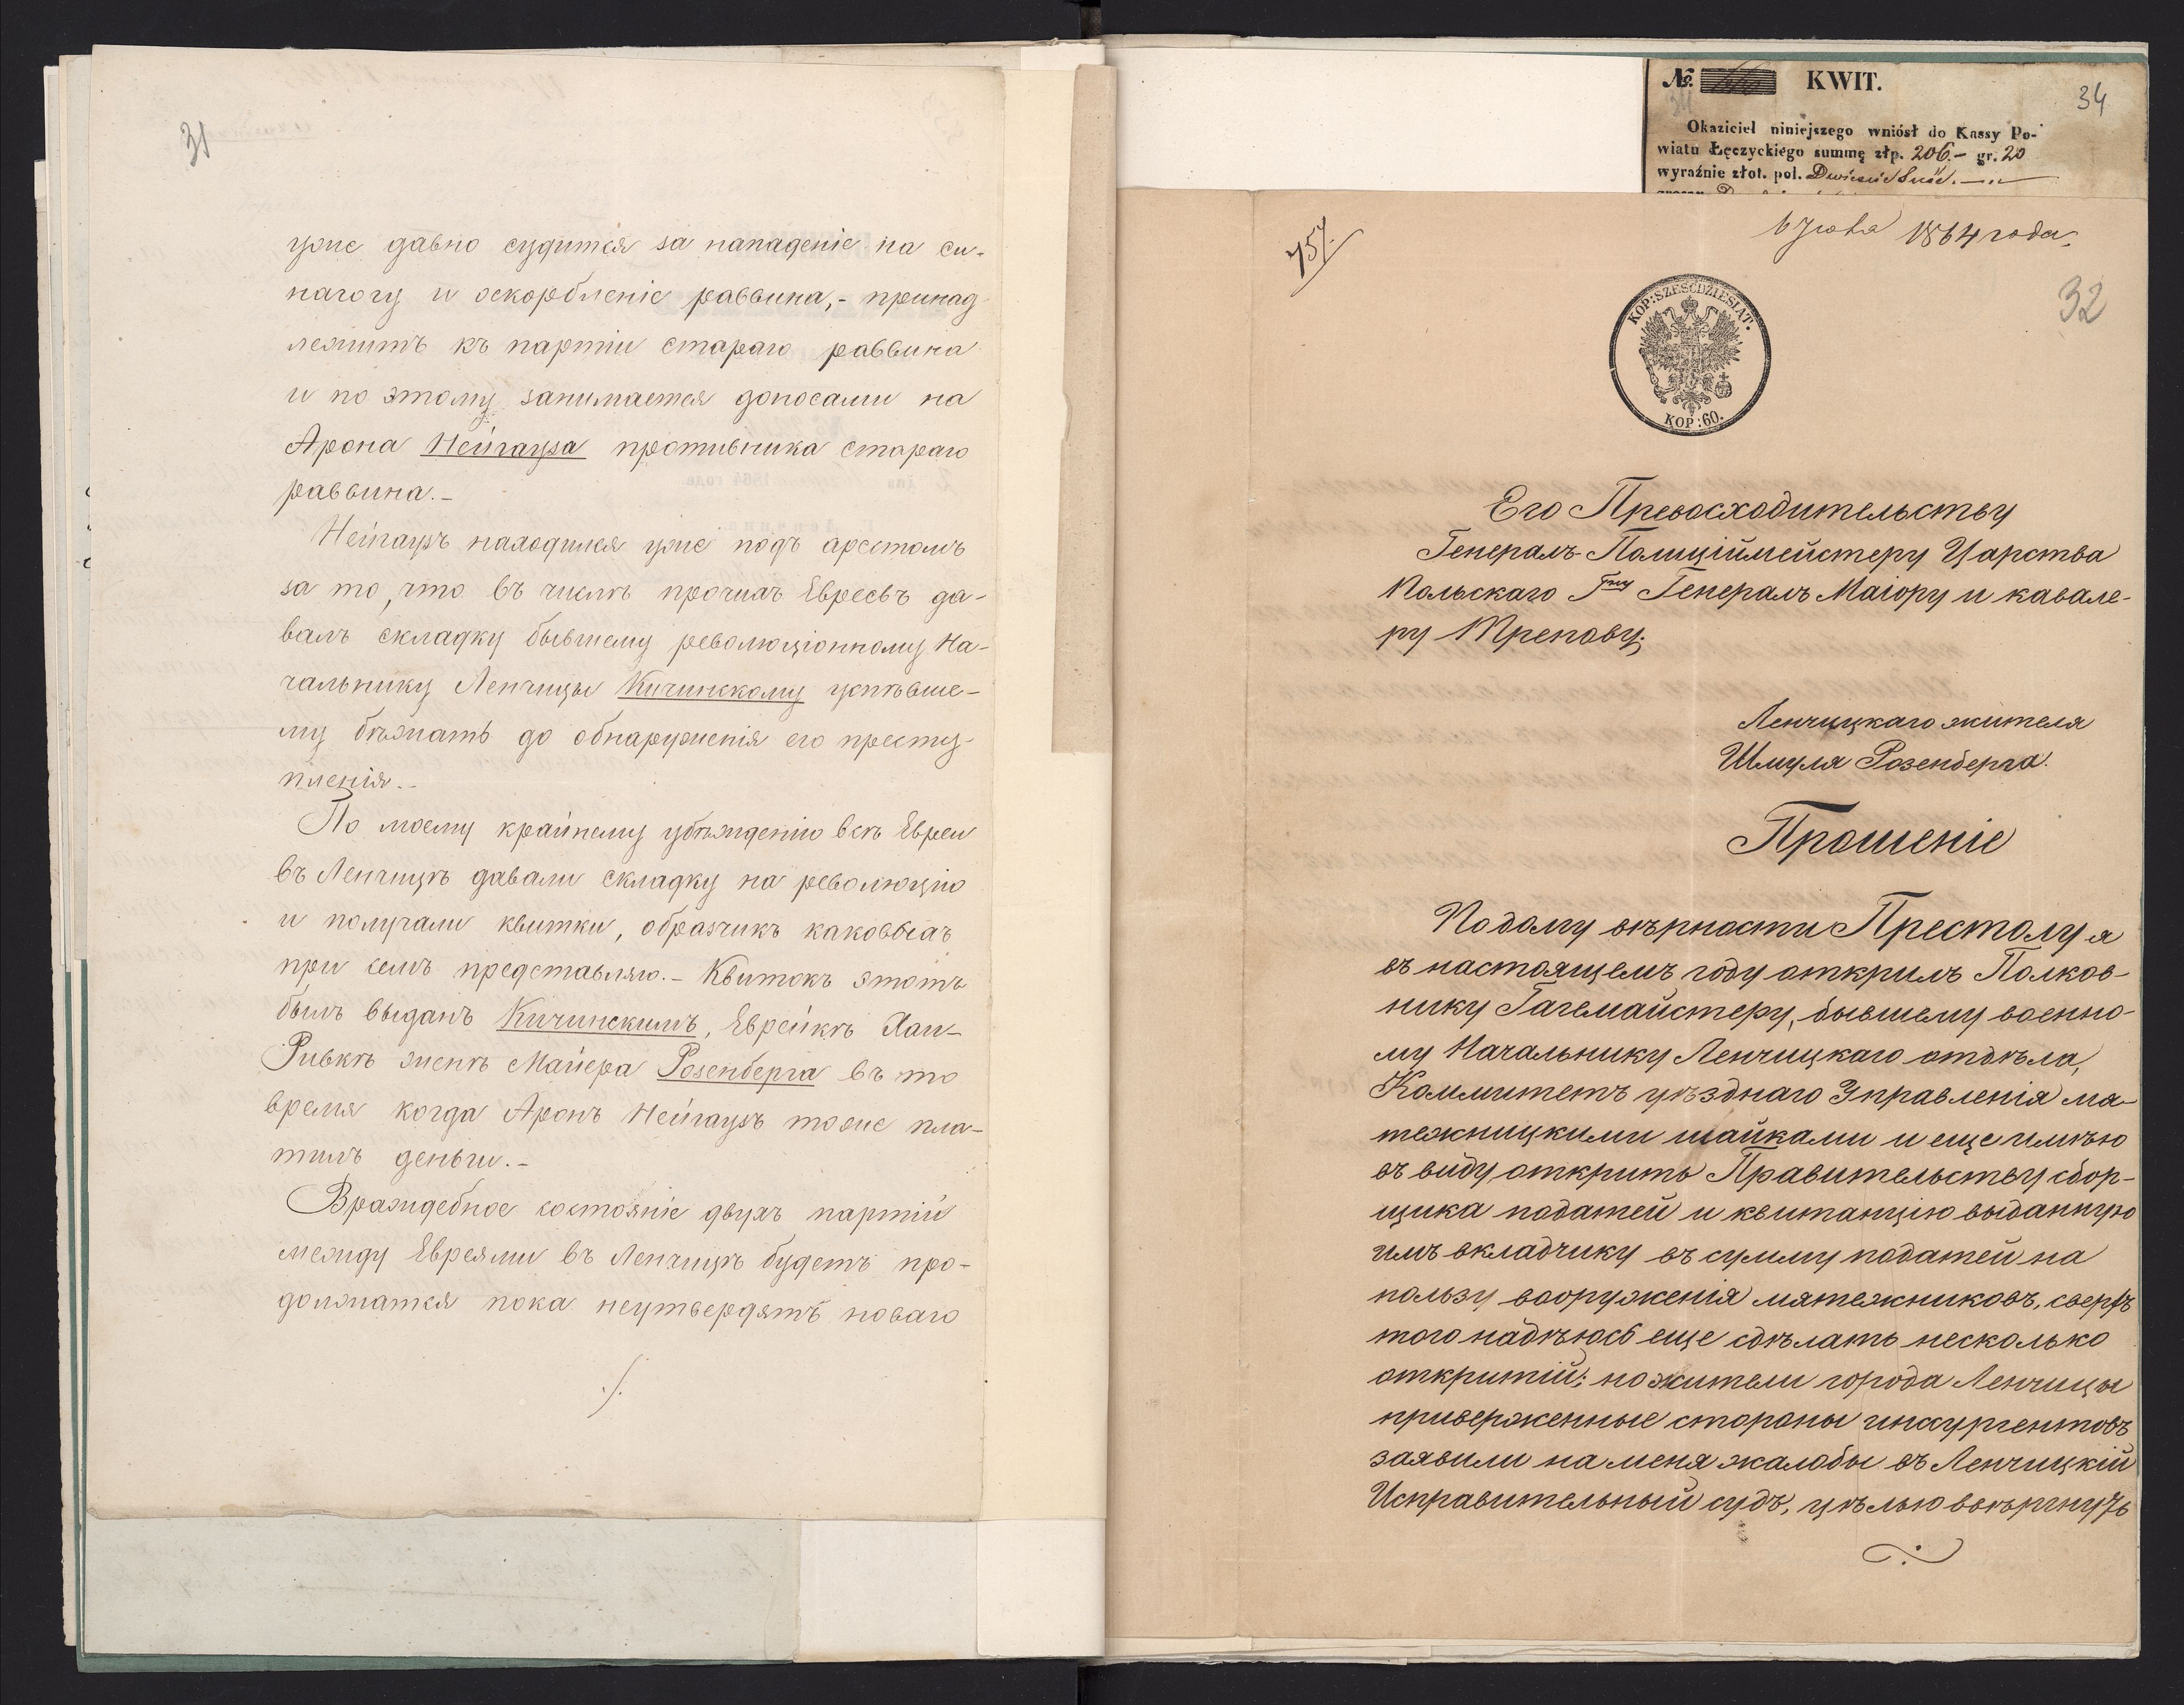 31
уже давно судится за нападеніе на си-
нагогу и оскорбленіе раввина,- принад
лежитъ къ партіи стараго раввина
и по этому занимается доносами на
Арона Нейгауза противника стараго
раввина.-
Нейгаузъ находился уже подъ арестомъ
за то, что въ числѣ прочихъ Евреевъ да-
валъ складку бывшему революціонному На-
чальнику Ленчицы Кичинскому успѣвше-
му бѣжать до обнаруженія его престу-
пленія.-
По моему крайнему убѣжденію всѣ Евреи
въ Ленчицѣ давали складку на революцію
и получали квитки, образчикъ каковыхъ
при семъ представляю.- Квитокъ этотъ
былъ выданъ Кичинскимъ, Еврейкѣ Хаи-
Ривкѣ женѣ Майера Розенберга въ то
время когда Аронъ Нейгаузъ тоже пла-
тилъ деньги.-
Враждебное состояніе двухъ партій
между Евреями въ Ленчицѣ будетъ про-
должатся пока неутвердятъ новаго
./.
№ KWIT.
34
Okaziciel niniejszego wniósł do Kassy Po-
wiatu Łęczyckiego summę złp. 206.- gr. 20
wyraźnie złot. pol. Dwieście Sześć
757
6 1864 года.
32
KOP: SZEŚĆDZIESIĄT.
KOP: 60.
Его Превосходительству
Генералъ-Полиціймейстеру Царства
Польскаго Гну Генералъ Маіору и кавале-
ру Трепову.
Ленчицкаго жителя
Шмуля Розенберга.
Прошеніе
По долгу вѣрности Престолу я
въ настоящемъ году открилъ Полков-
нику Гагемайстеру, бывшему военно-
му Начальнику Ленчицкаго отдѣла,
Коммитетъ уѣзднаго Управленія мя-
тежницкими шайками и еще имѣю
въ виду открить Правительству сбор-
щика податей и квитанцію выданную
имъ вкладчику въ сумму податей на
пользу вооруженія мятежниковъ, сверхъ
того надѣюсь еще сдѣлать несколько
откритій; но жители города Ленчицы
приверженные стороны инсургентовъ
заявили на меня жалобы въ Ленчицкій
Исправительный судъ, цѣлью ввѣргнуть